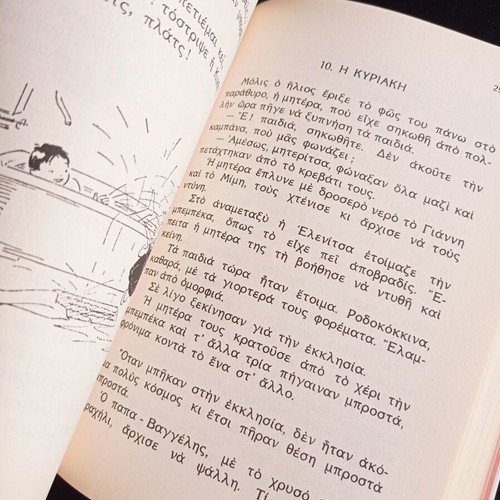 πετιέμαι καὶ
τόστριψε ἡ
πλάτς!
10. Η ΚΥΡΙΑΚΗ
Μόλις ὁ ἥλιος ἔριξε τὸ φῶς του πάνω στὸ
παράθυρο, ἡ μητέρα, ποὺ εἶχε σηκωθῆ ἀπὸ πολ-
λὴν ὥρα πῆγε νὰ ξυπνήση τὰ παιδιά.
— Ἔ! παιδιά, σηκωθῆτε. Δὲν ἀκοῦτε τὴν
καμπάνα, ποὺ μᾶς φωνάζει;
— Ἀμέσως, μητερίτσα, φώναξαν ὅλα μαζὶ καὶ
πετάχτηκαν ἀπὸ τὸ κρεβάτι τους.
Ἡ μητέρα ἔπλυνε μὲ δροσερὸ νερὸ τὸ Γιάννη
καὶ τὸ Μίμη, τοὺς χτένισε κι ἄρχισε νὰ τοὺς
ντύνη.
Στὸ ἀναμεταξὺ ἡ Ἑλενίτσα ἑτοίμαζε τὴν
μπεμπέκα, ὅπως τὸ εἶχε πεῖ ἀποβραδίς. Ἔ-
πειτα ἡ μητέρα της τὴ βοήθησε νὰ ντυθῆ καὶ
κείνη.
Τὰ παιδιὰ τώρα ἦταν ἕτοιμα. Ροδοκόκκινα,
καθαρά, μὲ τὰ γιορτερά τους φορέματα. Ἔλαμ-
παν ἀπὸ ὀμορφιά.
Σὲ λίγο ξεκίνησαν γιὰ τὴν ἐκκλησία.
Ἡ μητέρα τους κρατοῦσε ἀπὸ τὸ χέρι τὴν
μπεμπέκα καὶ τ' ἄλλα τρία πήγαιναν μπροστά,
φρόνιμα κοντὰ τὸ ἕνα στ' ἄλλο.
Ὅταν μπῆκαν στὴν ἐκκλησία, δὲν ἦταν ἀκό-
μα πολὺς κόσμος κι ἔτσι πῆραν θέση μπροστὰ
μπροστά.
Ὁ παπα - Βαγγέλης, μὲ τὸ χρυσό
ἄρχισε νὰ ψάλλη. Τί